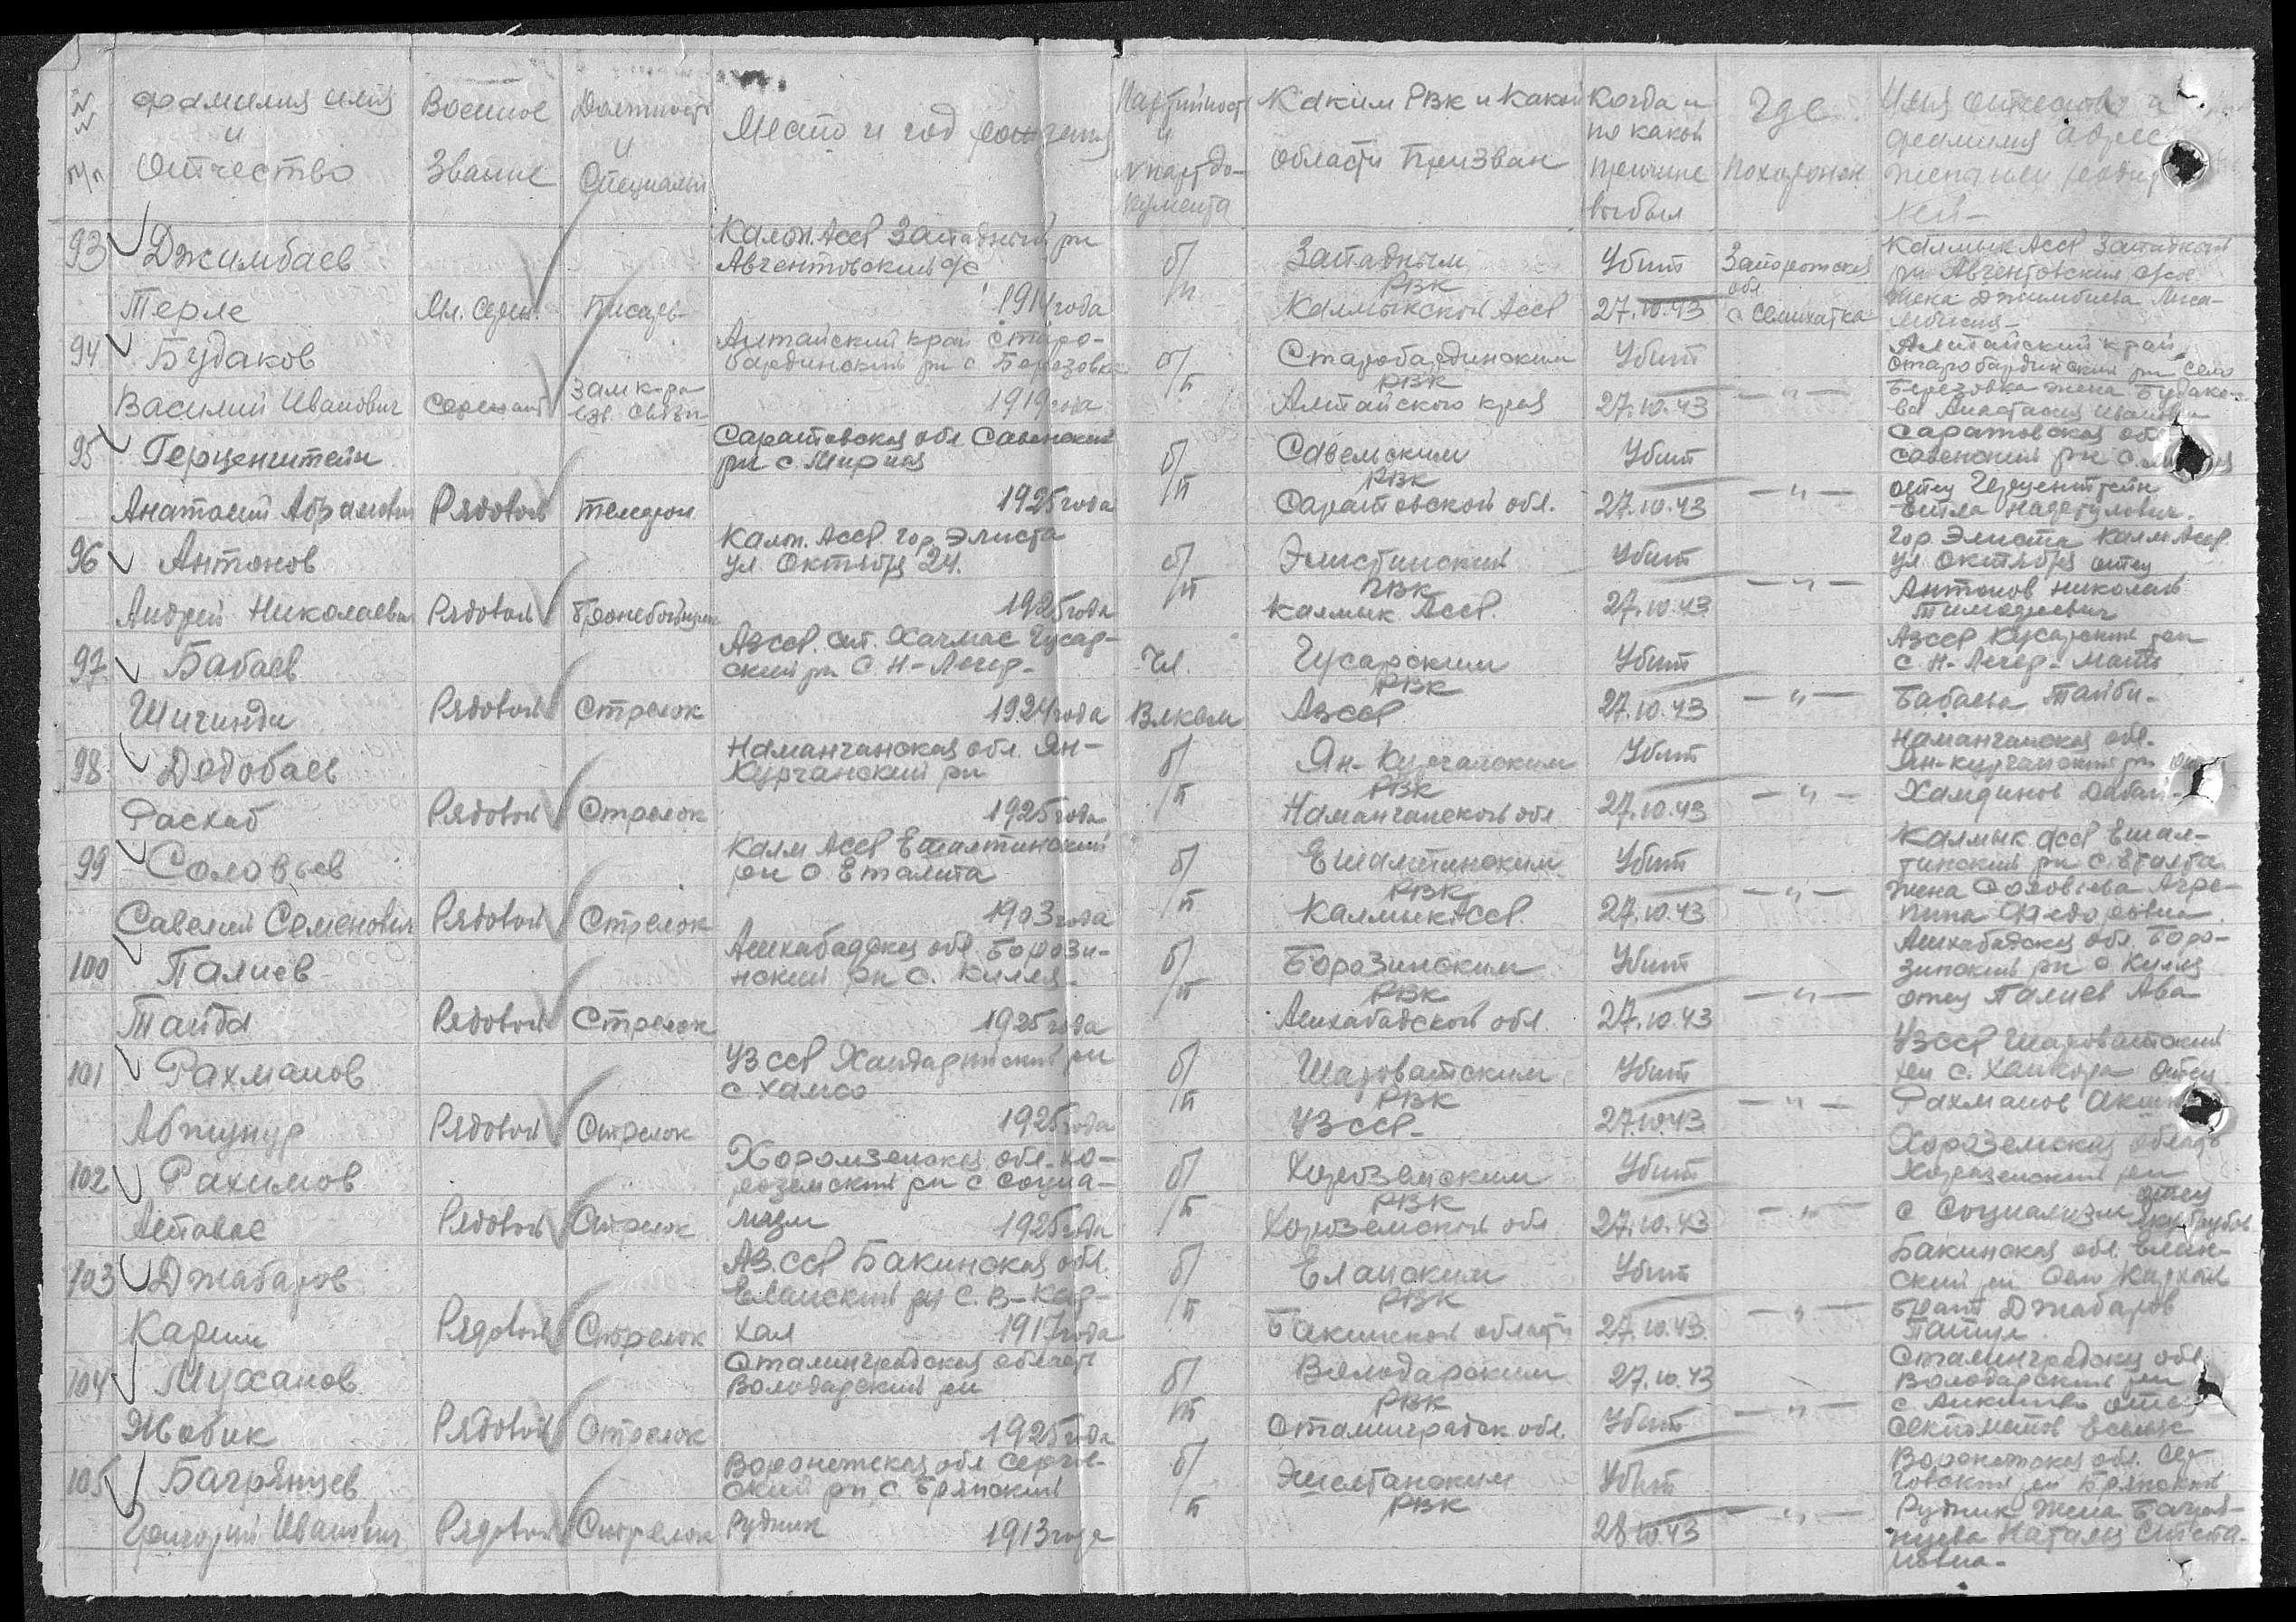 №№ п/п
Фамилия имя и отчество
Военное звание
Должность и специальн
Место и год рождения
Партийность и № партдокумента
Каким РВК и какой области призван
Когда и по какой причине выбыл
Где похоронен
Имя отчество и фамилия адрес жены или родит лей
93 Джимбаев Терле
Мл. Серж.
писарь
Калм. Асср Западный рн
Авгентовский с/с
1914 года
б/п
Западным РВК Калмыкской Асср
Убит 27.10.43
Запорожская обл с Семихатка
Калмык Асср Западный
рн Авгентовский с/сов
жена Джимбаева
94 Будаков Василий Иванович
Сержант
зам к-ра
связи
Алтайский край Старо-
бардинский рн с Березовка
1919 года
б/п
Старобардинским РВК Алтайского края
Убит 27.10.43
— " —
Алтайский край
Старобардинский рн село
Березовка жена Будако-
ва Анастасия Ивановн
95 Герценштейн Анатолий Абрамович
Рядовой
телефон
Саратовская обл Савенский
рн с Мирная
1925 года
б/п
Савенским РВК Саратовской обл.
Убит 27.10.43
— " —
Саратовская обл
Савенский рн с.
отец Герценштейн
96 Антонов Андрей Николаевич
Рядовой
Бронебойщик
Калм. Асср. гор. Элиста
ул Октября 24.
1925 года
б/п
Элистинский РВК Калмык. Асср.
Убит 27.10.43
— " —
гор. Элиста Калм Асср.
ул. Октября отец
Антонов Николай
Тимофеевич
97 Бабаев Шигинди
Рядовой
Стрелок
Азсср. ст. Хачмас Гусар-
ский рн с Н-Легер-
1924 года
Чл. Влксм
Гусарским РВК Азсср
Убит 27.10.43
— " —
Азсср Кусарский рн
с. Н-Легер- мать
Бабаева Тайби-
98 Дадобаев Расхаб
Рядовой
Стрелок
Наманганская обл. Ян-
Курганский рн
1925 года
б/п
Ян-Курганским РВК Наманганской обл
Убит 27.10.43
— " —
Наманганская обл.
Ян-Курганский рн
Хамдинов
99 Соловьев Савелий Семенович
Рядовой
Стрелок
Калм Асср Ешалтинский
рн с. Ешалта
1903 года
б/п
Ешалтинским РВК Калмык Асср.
Убит 27.10.43
— " —
Калмык Асср Ешал-
тинский рн с. Ешалта
жена Соловьева Агре-
пина Федоровна
100 Палиев Тайда
Рядовой
Стрелок
Ашхабадская обл. Борази-
нский рн с. Килля-
1925 года
б/п
Боразинским РВК Ашхабадской обл.
Убит 27.10.43
— " —
Ашхабадская обл. Бора-
зинский рн с Килля
отец Палиев Ава
101 Рахманов
Рядовой
Стрелок
Узсср
1925 года
б/п
Шароватским РВК Узсср-
Убит 27.10.43
— " —
Узсср Шароватский
рн с. Ханкора отец
Рахманов
102 Рахимов Атавас
Рядовой
Стрелок
Хоразмская обл. Хо-
роземский рн с Социа-
лизм 1925 года
б/п
Хороземским РВК Хороземской обл
Убит 27.10.43
— " —
Хораземская область
Хораземский рн
с Социализм отец
103 Джабаров Карим
Рядовой
Стрелок
Аз.сср Бакинская обл.
Еланский рн с. В-Кар-
хал 1917 года
б/п
Еланским РВК Бакинской области
Убит 27.10.43
— " —
Бакинская обл. Елан-
ский рн село Кархал
брат Джабаров
104 Муханов Жобик
Рядовой
Стрелок
Сталинградская область
Володарский рн
1925 года
б/п
Володарским РВК Сталинградск обл.
27.10.43 Убит
— " —
Сталинградская обл.
Володарский рн
отец
105 Багрянцев Григорий Иванович
Рядовой
Стрелок
Воронежская обл Сергов-
ский рн с. Брянский
Рудник 1913 года
б/п
РВК
Убит 28.10.43
— " —
Воронежская обл. Сер-
говский рн Брянский
Рудник жена Багря-
нцева Наталья Степа-
новна-